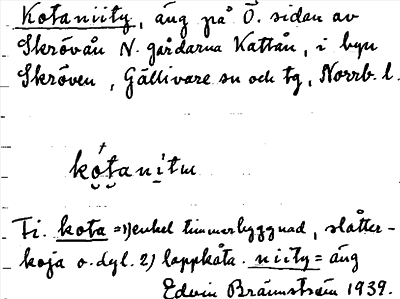 Kotaniity, äng på Ö. sidan av
Skrövån N. gårdarna Kattån, i byn
Skröven, Gällivare sn och tg, Norrb. l.
kótanitɯ
Fi. kota = 1) enkel timmerbyggnad, slåtter-
koja o. dyl. 2) lappkåta. niity = äng
Edvin Brännström 1939.